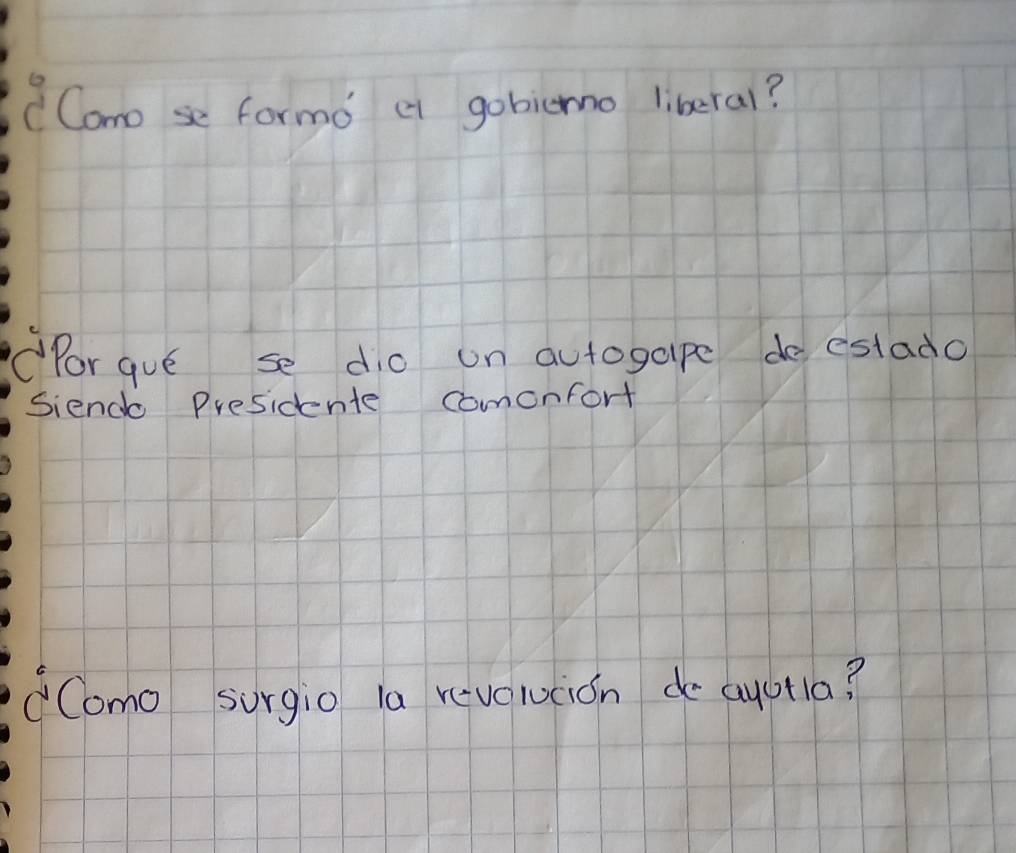 ¿Como se formó el gobierno liberal?
¿Por qué se dio un autogolpe de estado
siendo Presidente comonfort
¿Como surgio la revolución de ayutla?